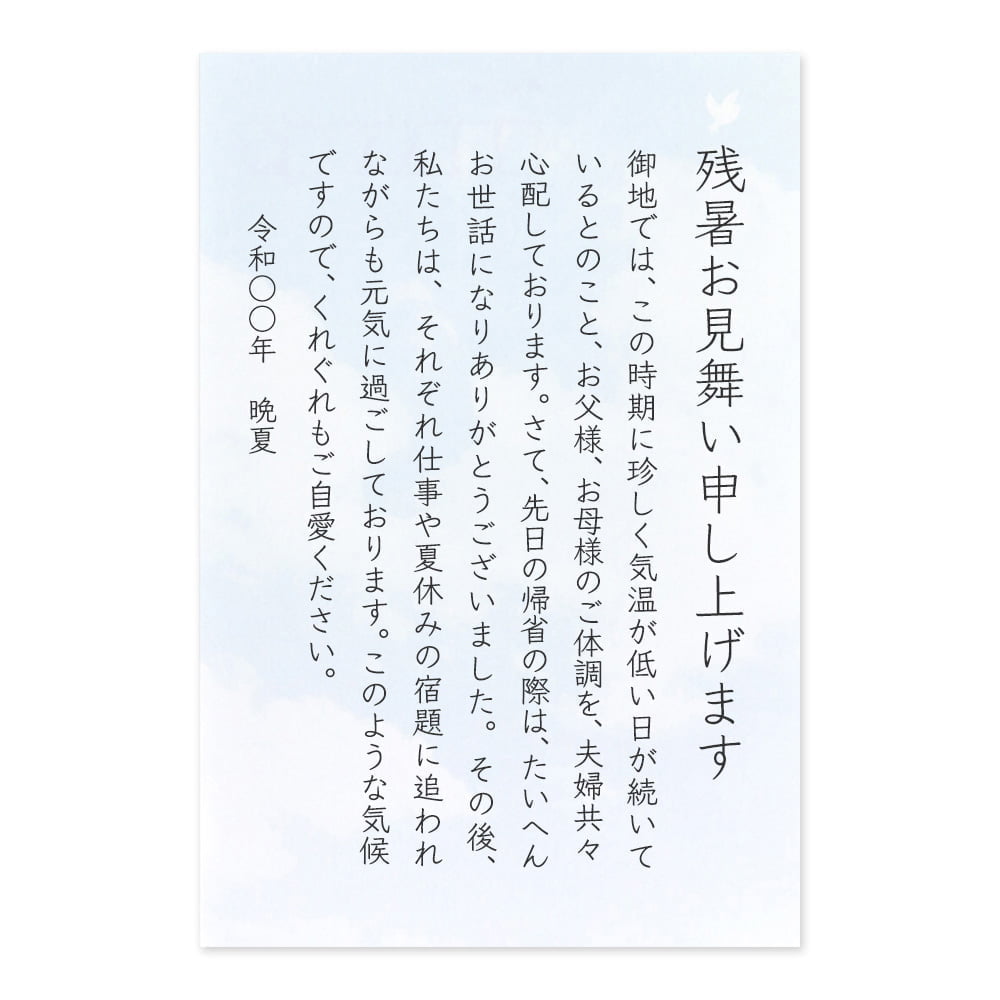 残暑お見舞い申し上げます
御地では、この時期に珍しく気温が低い日が続いて
いるとのこと、お父様、お母様のご体調を、夫婦共々
心配しております。さて、先日の帰省の際は、たいへん
お世話になりありがとうございました。その後、
私たちは、それぞれ仕事や夏休みの宿題に追われ
ながらも元気に過ごしております。このような気候
ですので、くれぐれもご自愛ください。
令和〇〇年　晩夏